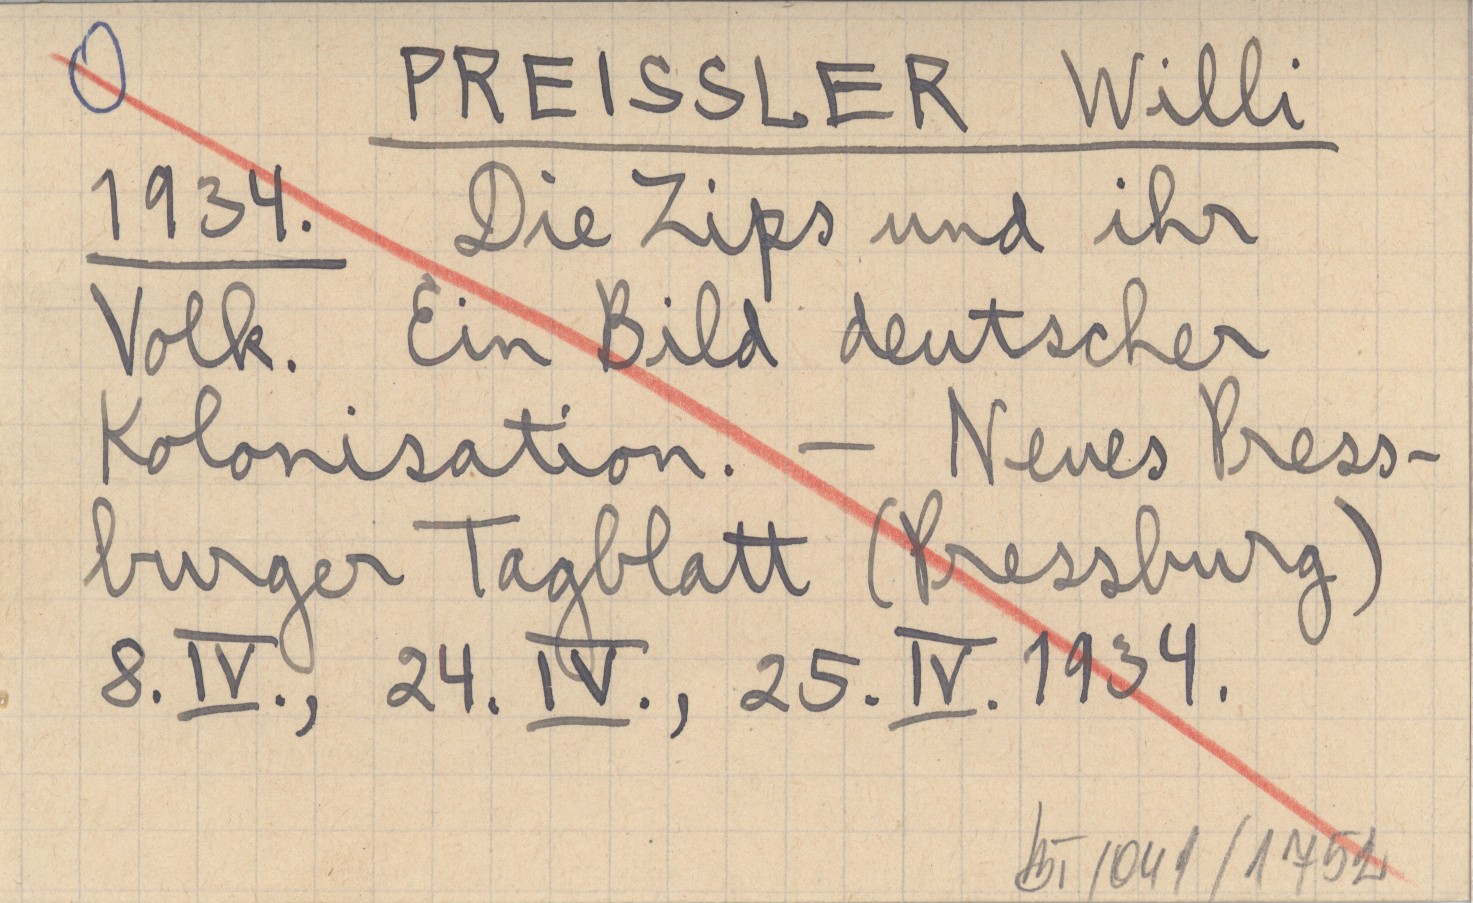 PREISSLER Willi
1934. Die Zips und ihr
Volk. Ein Bild deutscher
Kolonisation. — Neues Press-
burger Tagblatt (Pressburg)
8. IV., 24. IV., 25. IV. 1934.
/041/1752